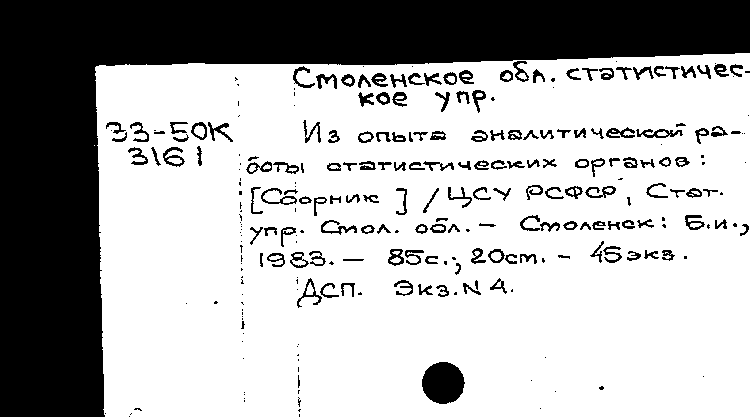 Смоленское обл. статистичес-
кое упр.
33-50К
3161
Из опыта аналитической ра-
боты статистических органов:
[Сборник] / ЦСУ РСФСР, Стат.
упр. Смол. обл. – Смоленск: Б.и.,
1983. – 85с.; 20см. – 45экз.
ДСП. Экз. N 4.